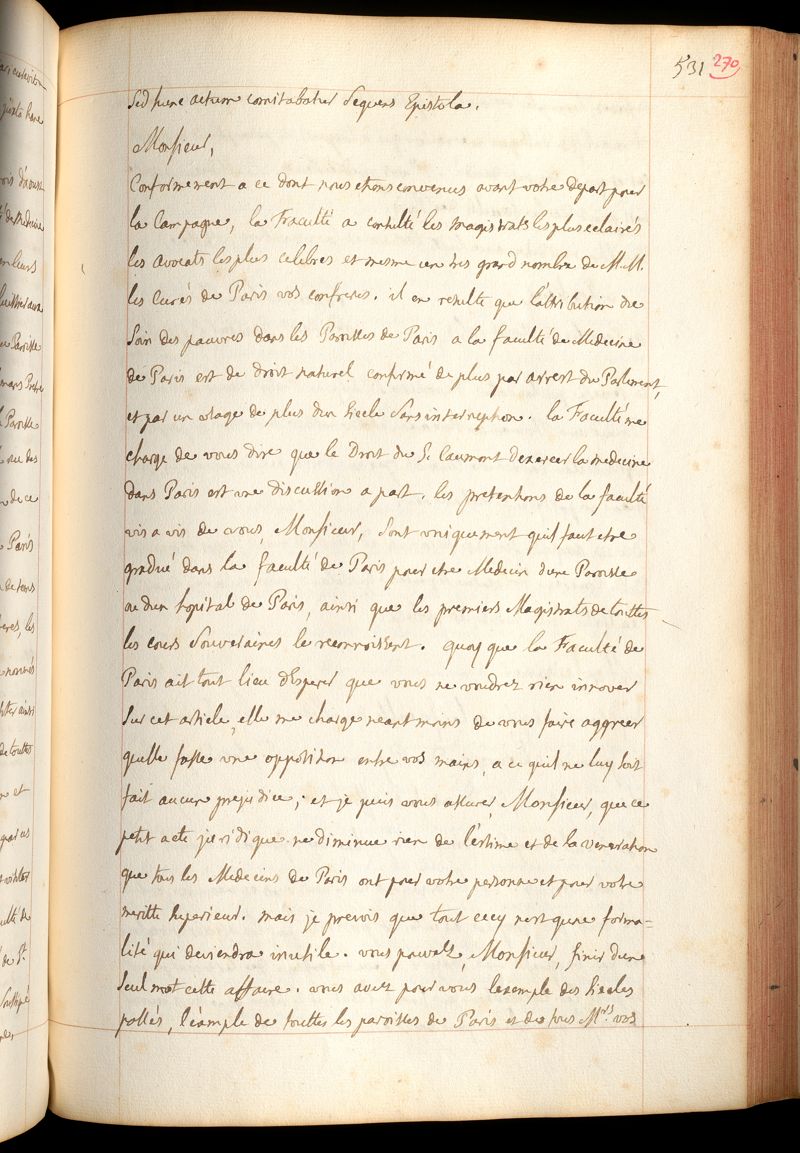 531 270
Sed hunc actum comitabatur Sequens Epistola.
Monsieur,
Conformement a ce dont nous etions convenus avant votre depart pour
la Campagne, la Faculté a consulté les magistrats les plus eclairés
les avocats les plus celebres et mesme un tres grand nombre de M.M.
les Curés de Paris vos confreres. il en resulte que l'attribution du
Soin des pauvres dans les Paroisses de Paris a la faculté de Medecine
de Paris est de droit naturel confirmé de plus par arrest du Parlement,
et par un usage de plus d'un siecle sans interruption. la Faculté me
charge de vous dire que le Droit du S. Caumont d'exercer la medecine
dans Paris est une discussion a part. les pretentions de la faculté
vis a vis de vous, Monsieur, sont uniquement qu'il faut etre
gradué dans la faculté de Paris pour etre Medecin d'une Paroisse
ou d'un hopital de Paris, ainsi que les premiers Magistrats de touttes
les cours Souveraines le reconnoissent. quoy que la Faculté de
Paris ait tout lieu d'Esperer que vous ne voudrez rien innover
sur cet article, elle me charge neantmoins de vous faire aggreer
qu'elle fasse une opposition entre vos mains, a ce qu'il ne luy soit
fait aucun prejudice; et je puis vous assurer, Monsieur, que ce
petit acte juridique ne diminue rien de l'estime et de la veneration
que tous les Medecins de Paris ont pour votre personne et pour votre
meritte superieur. mais je prevois que tout cecy n'est qu'une forma=
lité qui deviendra inutile. vous pouvez, Monsieur, finir d'un
seul mot cette affaire. vous avez pour vous l'exemple des siecles
passés, l'éxample de touttes les paroisses de Paris et de tous Mrs. vos